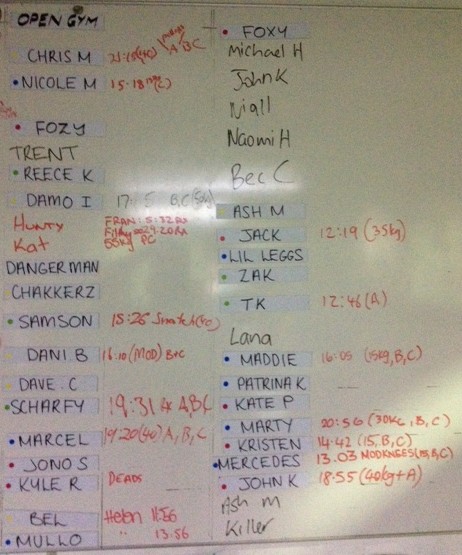 OPEN GYM
CHRIS M 21:18(40) A/BC
NICOLE M 15:18
FOZY
TRENT
REECE K
DAMO I 17: 5 B,C
HUNTY FRAN: 5:32 Rx
Kat 55kg PC
DANGERMAN
CHAKKERZ
SAMSON 15:26 Snatch
DANI B 16:10 (MOD) B+C
DAVE.C
SCHARFY 19:31 A,B,C
MARCEL 19:20(40) A,B,C
JONO S
KYLE R DEADS
BEL Helen 11:56
MULLO " 13:56
FOXY
Michael H
John K
Niall
Naomi H
Bec C
ASH M
JACK 12:19 (35kg)
LIL LEGGS
ZAK
TK 12:46 (A)
Lana
MADDIE 16:05 (15kg, B, C)
PATRINA K
KATE P
MARTY 20:56 (30KG, B, C)
KRISTEN 14:42 (15, B, C)
MERCEDES 13.03 MODKNEES(15,B,C)
JOHN K 18:55 (40kg+A)
Ash M
Killer